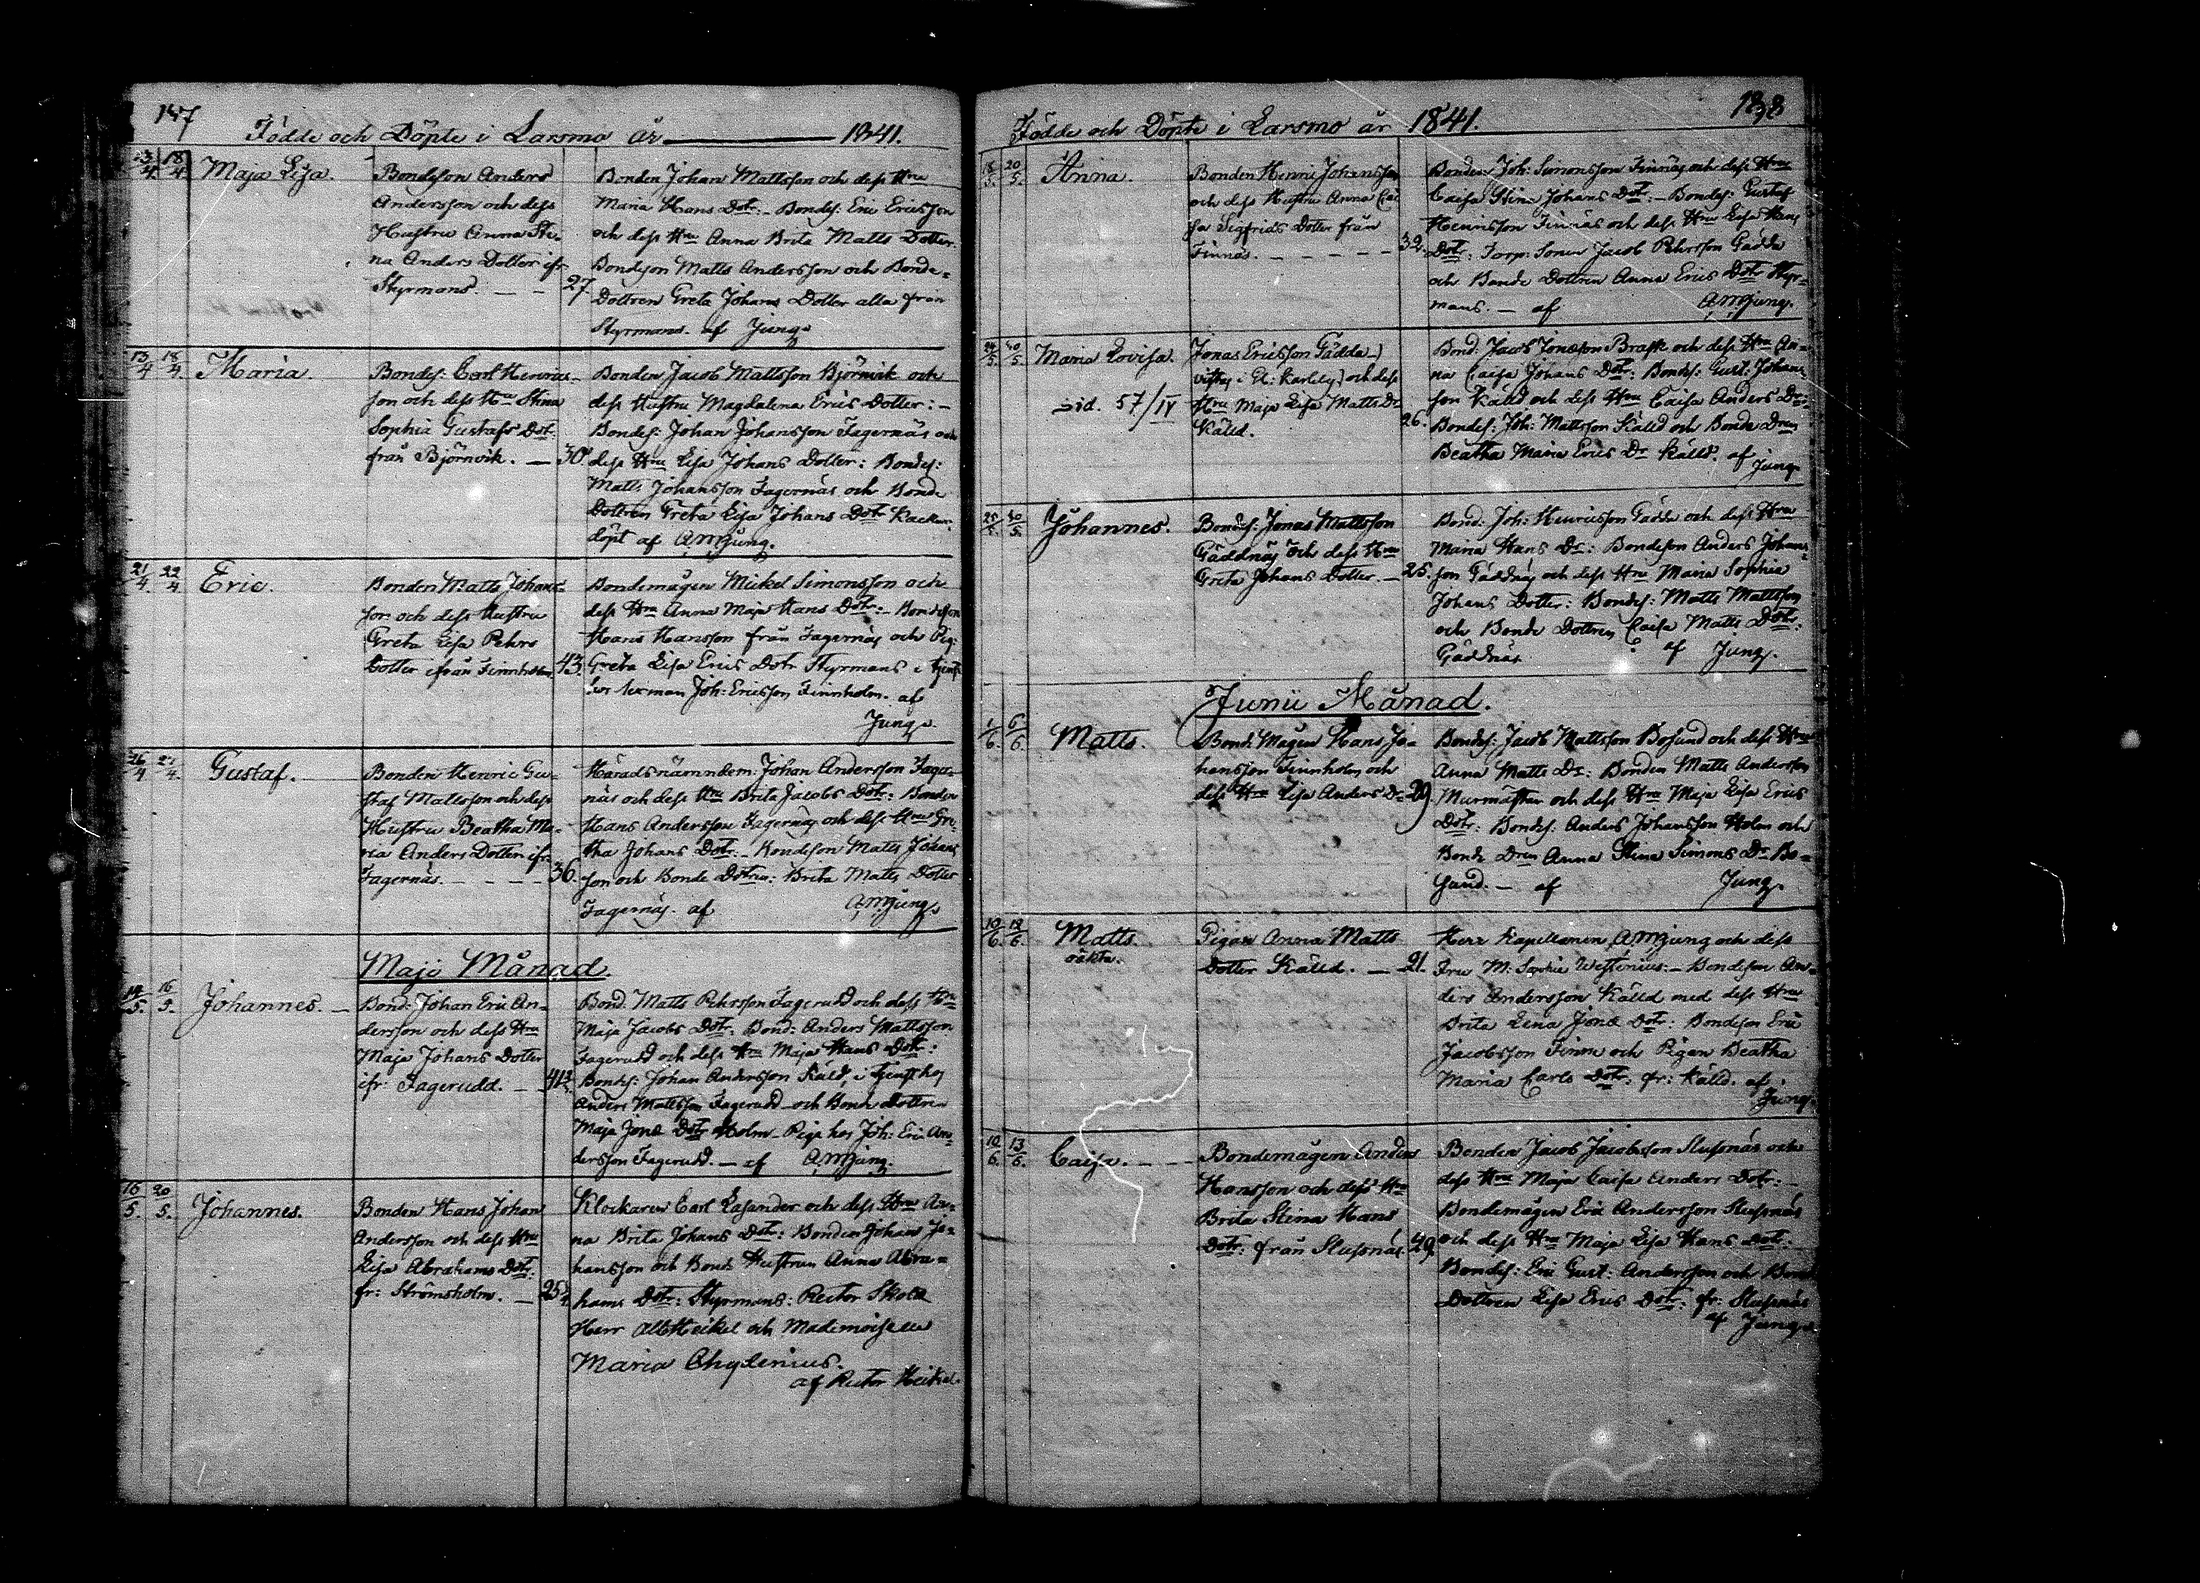 147
Födde och Döpte i Larsmo år 1841.
13/4 18/4 Maja Lisa.
Bondeson Anders
Andersson och dess
Hustru Anna Sti-
na Anders Dotter ifr.
Styrmans. — — 27.
Bonden Johan Mattsson och dess Hru
Maria Hans Dotr: – Bondes: Eric Ericsson
och dess Hru Anna Brita Matts Dotter.
Bondeson Matts Andersson och Bonde-
Dottren Greta Johans Dotter alla från
Styrmans. af Jung.
13/4 18/4 Maria.
Bondes: Carl Henrics-
son och dess Hru Stina
Sophia Gustafs Dotr:
från Björnvik. — 30.
Bonden Jacob Mattsson Björnvik och
dess Hustru Magdalena Erics Dotter: –
Bondes: Johan Johansson Fagernäs och
dess Hru Lisa Johans Dotter: Bondes:
Matts Johansson Fagernäs och Bonde
Dottren Greta Lisa Johans Dotr
döpt af AMJung.
21/4 22/4 Eric.
Bonden Matts Johans-
son och dess Hustru
Greta Lisa Pehrs
Dotter ifrån Finnholm. 43.
Bondemågen Mickel Simonsson och
dess Hru Anna Maja Hans Dotr: – Bondeson
Hans Hansson från Fagernäs och Pig:
Greta Lisa Erics Dotr Styrmans i tjenst
Joh: Ericsson Finnholm. af
Jung.
26/4 27/4 Gustaf.
Bonden Henric Gu-
staf Mattsson och dess
Hustru Beatha Ma-
ria Anders Dotter ifr.
Fagernäs. — — — 36.
Häradsnämndem: Johan Andersson Fager-
näs och dess Hru Brita Jacobs Dotr: Bonden
Hans Andersson Fagernäs och dess Hru Gre-
tha Johans Dotr: – Bondeson Matts Johans
son och Bonde Dotren: Brita Matts Dotter
Fagernäs. af AMJung.
Maji Månad.
14/5 16/5 Johannes. —
Bond: Johan Eric An-
dersson och dess Hru
Maja Johans Dotter
ifr: Fagerudd. —
Bond. Matts Pehrsson Fagerudd och dess Hru
Maja Jacobs Dotr: Bond: Anders Mattsson
Fagerudd och dess Hru Maja Hans Dotr:
Bondes: Johan Andersson Käld, i tjenst hos
Anders Mattsson Fagerudd och Bonde Dottren
Maja Jonæ Dotr Holm – Piga hos Joh: Eric An-
dersson Fagerudd. — af AMJung.
16/5 20/5 Johannes.
Bonden Hans Johan
Andersson och dess Hru
Lisa Abrahams Dotr:
fr: Strömsholm. —
Klockaren Carl Lasander och dess Hru An-
na Brita Johans Dotr: Bonden Johan Jo-
hansson och Bond Hustrun Anna Abra-
hams Dotr: Styrmans: Rector Skolæ
Herr Alb Heikel och Mademoiselle
Maria Chydenius.
af Rector Heikel.
138
Födde och Döpte i Larsmo år 1841.
18/5 20/5 Anna.
Bonden Henric Johansson
och dess Hustru Anna Cai-
sa Sigfrids Dotter från
Finnäs. — — — — 32.
Bonden Joh: Simonsson Finnäs och dess Hru
Caisa Stina Johans Dotr: – Bondes: Gustaf
Henricsson Finnäs och dess Hru Lisa Hans
Dotr: Torp: Sonen Jacob Pehrsson Gädda
och Bonde Dottren Anna Erics Dotr Styr-
mans. — af AMJung.
24/5 30/5 Maria Lovisa.
sid. 57/IV
Jonas Ericsson Gädda
vistas i Gl: Karleby) och dess
Hru Maja Lisa Matts Dr
Källd. 26.
Bond: Jacob Jonæson Brask och dess Hru An-
na Caisa Johans Dotr: Bondes: Gust: Johans-
son Källd och dess Hru Caisa Anders Dr:
Bondes: Joh: Mattsson Källd och Bonde Dren
Beatha Maria Erics Dr Källd. af
Jung.
25/5 30/5 Johannes.
Bondes: Jonas Mattsson
Gäddnäs och dess Hru
Greta Johans Dotter. — 25.
Bond: Joh: Henricsson Gädda och dess Hru
Maria Hans Dr: Bondeson Anders Johans-
son Gäddnäs och dess Hru Maria Sophia
Johans Dotter: Bondes: Matts Mattsson
och Bonde Dottren Caisa Matts Dotr:
Gäddnäs. af Jung.
Junii Månad.
1/6 6/6 Matts.
Bond: Mågen Hans Jo-
hansson Finnholm och
dess Hru Lisa Anders Dr 29.
Bondes: Jacob Mattsson Bosund och dess Hru
Anna Matts Dr: Bonden Matts Andersson
Murmästar och dess Hru Maja Lisa Erics
Dotr: Bondes: Anders Johansson Holm och
Bonde Dren Anna Stina Simons Dr Bo-
sund. — af Jung.
10/6 12/6 Matts.
oäkta.
Pigan Anna Matts
Dotter Källd. — 21.
Herr Kapellanen AMJung och dess
Fru M: Sophia Westenius: – Bondeson An-
ders Andersson Källd med dess Hru
Brita Lena Jonæ Dotr: Bondeson Eric
Jacobsson Finne och Pigan Beatha
Maria Carls Dotr: fr: Källd. af
Jung.
10/6 13/6 Caisa. — — —
Bondemågen Anders
Hansson och dess Hru
Brita Stina Hans
Dotr: från Slussnäs. 29.
Bonden Jacob Jacobsson Slussnäs och
dess Hru Maja Caisa Anders Dotr: –
Bondemågen Eric Andersson Slussnäs
och dess Hru Maja Lisa Hans Dotr:
Bondes: Eric Gust: Andersson och Bond
Dottren Lisa Erics Dotr: fr: Slussnäs
af Jung.